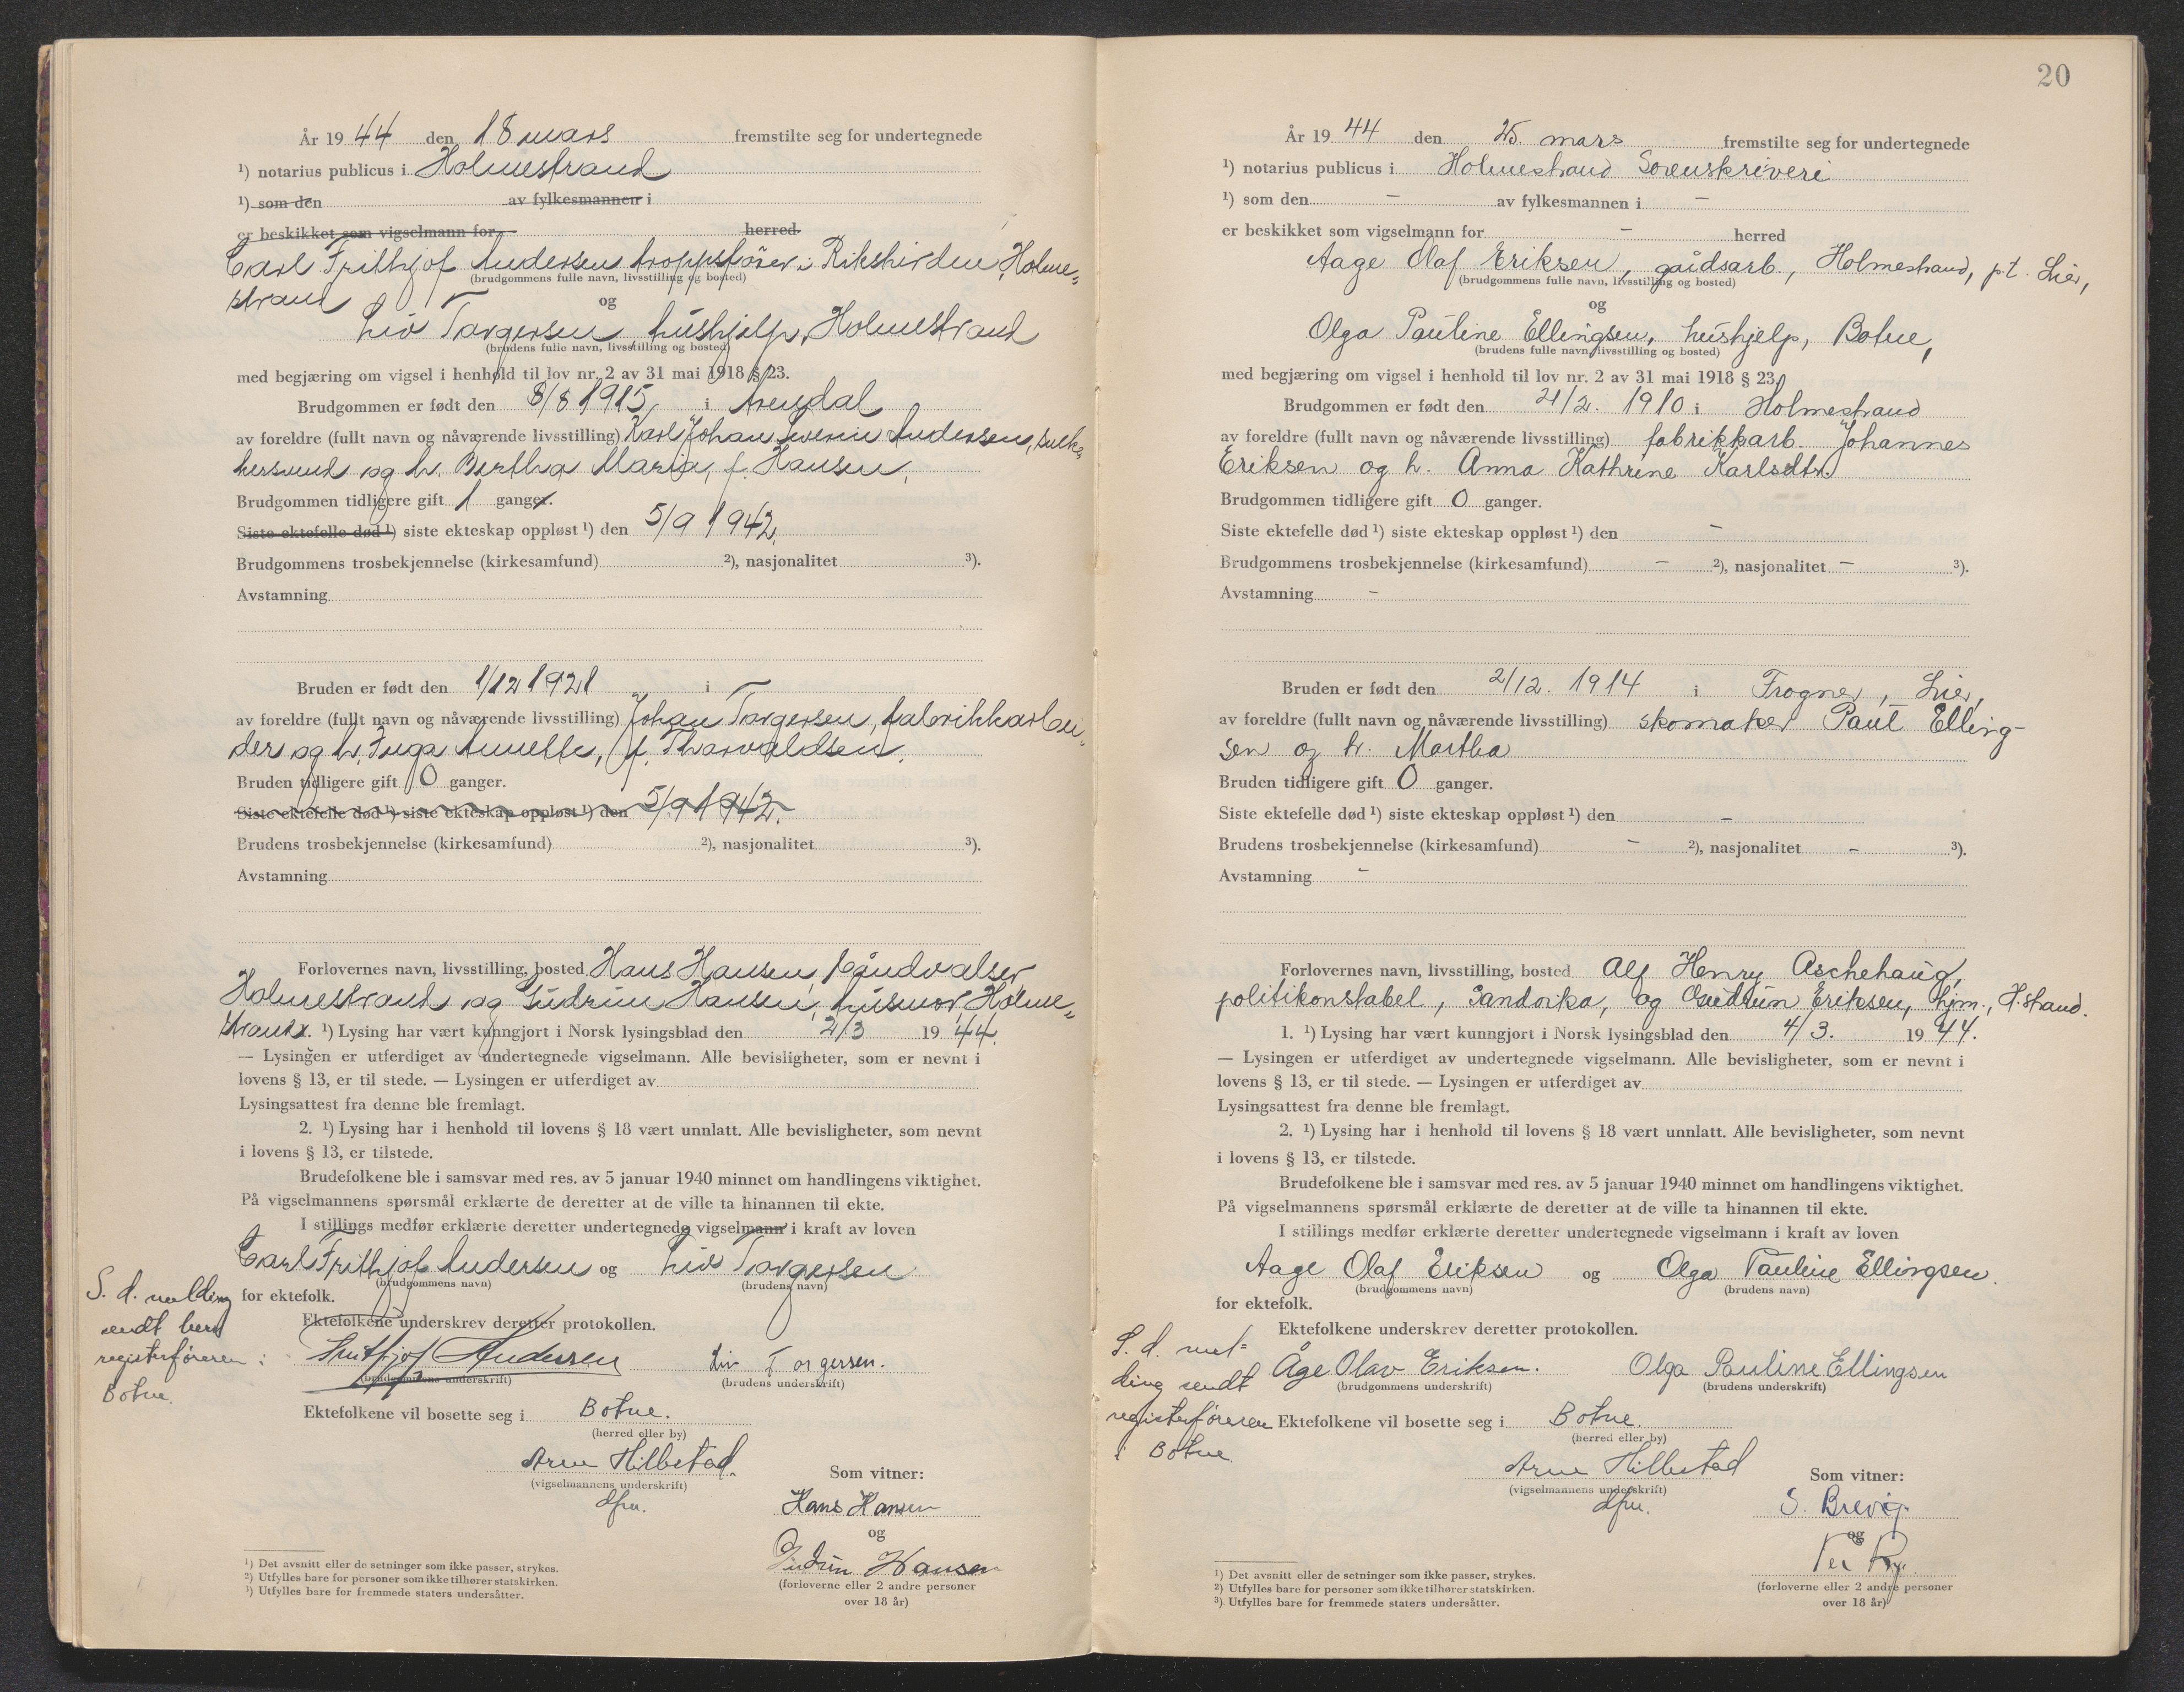 År 19 44 den 18 mars fremstilte seg for undertegnede
¹) notarius publicus i Holmestrand
¹) som den av fylkesmannen i
er beskikket som vigselmann for herred.
Carl Frithjof Andersen troppsfører i Rikshirden, Holme-
(brudgommens fulle navn, livsstilling og bosted)
strand
og
Liv Torgersen hushjelp, Holmestrand
(brudens fulle navn, livsstilling og bosted)
med begjæring om vigsel i henhold til lov nr. 2 av 31 mai 1918 § 23.
Brudgommen er født den 8/8 1915, i Arendal
av foreldre (fullt navn og nåværende livsstilling) Karl Johan Andersen,
og h. Bertha Maria, f. Hansen.
Brudgommen tidligere gift 1 ganger.
Siste ektefelle død ¹) siste ekteskap oppløst ¹) den 5/9 1942.
Brudgommens trosbekjennelse (kirkesamfund) ²), nasjonalitet ³).
Avstamning
Bruden er født den 1/12 1921 i
av foreldre (fullt navn og nåværende livsstilling) Johan Torgersen, fabrikkarbei-
der og h. Inga Annette, f. Thorvaldsen.
Bruden tidligere gift 0 ganger.
Siste ektefelle død ¹) siste ekteskap oppløst ¹) den 5/9 1942.
Brudens trosbekjennelse (kirkesamfund) ²), nasjonalitet ³).
Avstamning
Forlovernes navn, livsstilling, bosted Hans Hansen, båndvalser
Holmestrand og Gudrun Hansen, husmor, Holme-
strand. ¹) Lysing har vært kunngjort i Norsk lysingsblad den 2/3 19 44.
— Lysingen er utferdiget av undertegnede vigselmann. Alle bevisligheter, som er nevnt i
lovens § 13, er til stede. — Lysingen er utferdiget av
Lysingsattest fra denne ble fremlagt.
2. ¹) Lysing har i henhold til lovens § 18 vært unnlatt. Alle bevisligheter, som nevnt
i lovens § 13, er tilstede.
Brudefolkene ble i samsvar med res. av 5 januar 1940 minnet om handlingens viktighet.
På vigselmannens spørsmål erklærte de deretter at de ville ta hinannen til ekte.
I stillings medfør erklærte deretter undertegnede vigselmann i kraft av loven
Carl Frithjof Andersen og Liv Torgersen
(brudgommens navn) (brudens navn)
for ektefolk.
S. d. melding
sendt herr
registerføreren i
Botne.
Ektefolkene underskrev deretter protokollen.
Frithjof Andersen Liv Torgersen.
(brudgommens underskrift) (brudens underskrift)
Ektefolkene vil bosette seg i Botne.
(herred eller by)
Arne Hillestad
(vigselmannens underskrift)
dfm.
Som vitner:
Hans Hansen
og
Gudrun Hansen
(forloverne eller 2 andre personer
over 18 år)
¹) Det avsnitt eller de setninger som ikke passer, strykes.
²) Utfylles bare for personer som ikke tilhører statskirken.
³) Utfylles bare for fremmede staters undersåtter.
20
År 19 44 den 25. mars fremstilte seg for undertegnede
¹) notarius publicus i Holmestrand Sorenskriveri
¹) som den - av fylkesmannen i -
er beskikket som vigselmann for - herred
Aage Olaf Eriksen, gårdsarb., Holmestrand, p.t. Lier,
(brudgommens fulle navn, livsstilling og bosted)
og
Olga Pauline Ellingsen, hushjelp, Botne,
(brudens fulle navn, livsstilling og bosted)
med begjæring om vigsel i henhold til lov nr. 2 av 31 mai 1918 § 23.
Brudgommen er født den 21/2. 1910 i Holmestrand
av foreldre (fullt navn og nåværende livsstilling) fabrikkarb. Johannes
Eriksen og h. Anna Kathrine Karlsdtr.
Brudgommen tidligere gift 0 ganger.
Siste ektefelle død ¹) siste ekteskap oppløst ¹) den -
Brudgommens trosbekjennelse (kirkesamfund) - ²), nasjonalitet - ³).
Avstamning -
Bruden er født den 2/12. 1914 i Frogner, Lier,
av foreldre (fullt navn og nåværende livsstilling) skomaker Paul Elling-
sen og h. Martha
Bruden tidligere gift 0 ganger.
Siste ektefelle død ¹) siste ekteskap oppløst ¹) den -
Brudens trosbekjennelse (kirkesamfund) - ²), nasjonalitet - ³).
Avstamning -
Forlovernes navn, livsstilling, bosted Alf Henry Aschehaug,
politikonstabel, Sandvika, og Gudrun Eriksen, hjm., H.strand.
1. ¹) Lysing har vært kunngjort i Norsk lysingsblad den 4/3. 19 44.
— Lysingen er utferdiget av undertegnede vigselmann. Alle bevisligheter, som er nevnt i
lovens § 13, er til stede. — Lysingen er utferdiget av
Lysingsattest fra denne ble fremlagt.
2. ¹) Lysing har i henhold til lovens § 18 vært unnlatt. Alle bevisligheter, som nevnt
i lovens § 13, er tilstede.
Brudefolkene ble i samsvar med res. av 5 januar 1940 minnet om handlingens viktighet.
På vigselmannens spørsmål erklærte de deretter at de ville ta hinannen til ekte.
I stillings medfør erklærte deretter undertegnede vigselmann i kraft av loven
Aage Olaf Eriksen og Olga Pauline Ellingsen.
(brudgommens navn) (brudens navn)
for ektefolk.
S. d. mel-
ding sendt
registerføreren
i Botne.
Ektefolkene underskrev deretter protokollen.
Åge Olav Eriksen. Olga Pauline Ellingsen
(brudgommens underskrift) (brudens underskrift)
Ektefolkene vil bosette seg i Botne.
(herred eller by)
Arne Hillestad
(vigselmannens underskrift)
dfm.
Som vitner:
S. Brevig.
og
Per
(forloverne eller 2 andre personer
over 18 år)
¹) Det avsnitt eller de setninger som ikke passer, strykes.
²) Utfylles bare for personer som ikke tilhører statskirken.
³) Utfylles bare for fremmede staters undersåtter.